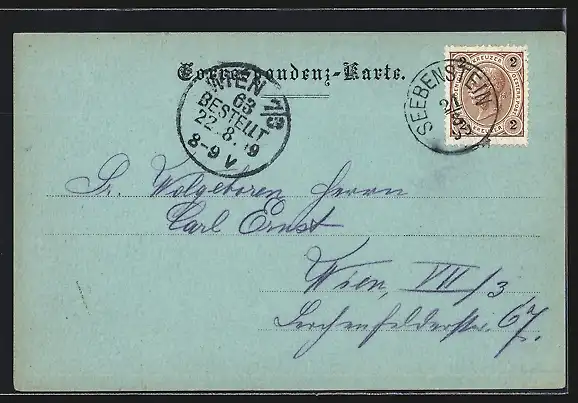 Correspondenz-Karte.
WIEN 1/3
63
BESTELLT
22.8. 9
8-9 V
2 KREUZER 2
SEEBENSTEIN
2 2
Sr. Wolgeboren Herrn
Carl Ernst
Wien, VII/3
Lerchenfelderstr. 67.